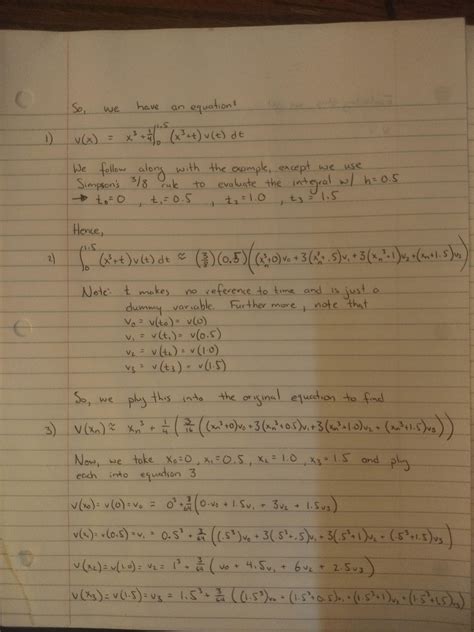 So, we have an equation:
1) v(x) = x³ + ¼∫₀^1.5 (x³+t) v(t) dt
We follow along with the example, except we use
Simpson's 3/8 rule to evaluate the integral w/ h=0.5
→ t₀=0 , t₁=0.5 , t₂=1.0 , t₃=1.5
Hence,
2) ∫₀^1.5 (x³+t) v(t) dt ≈ (3/8)(0.5)((xₙ³+0)v₀+3(xₙ³+.5)v₁+3(xₙ³+1)v₂+(xₙ+1.5)v₃)
Note: t makes no reference to time and is just a
dummy variable. Further more, note that
v₀ = v(t₀) = v(0)
v₁ = v(t₁) = v(0.5)
v₂ = v(t₂) = v(1.0)
v₃ = v(t₃) = v(1.5)
So, we plug this into the original equation to find
3) v(xₙ) ≈ xₙ³ + ¼(3/16((xₙ³+0)v₀+3(xₙ³+0.5)v₁+3(xₙ³+1.0)v₂+(xₙ³+1.5)v₃))
Now, we take x₀=0, x₁=0.5, x₂=1.0, x₃=1.5 and plug
each into equation 3
v(x₀)=v(0)=v₀ = 0³+3/64(0·v₀+1.5v₁+3v₂+1.5v₃)
v(x₁)=v(0.5)=v₁ = 0.5³+3/64((.5³)v₀+3(.5³+.5)v₁+3(.5³+1)v₂+(.5³+1.5)v₃)
v(x₂)=v(1.0)=v₂ = 1³+3/64(v₀+4.5v₁+6v₂+2.5v₃)
v(x₃)=v(1.5)=v₃ = 1.5³+3/64((1.5³)v₀+(1.5³+0.5)v₁+(1.5³+1)v₂+(1.5³+1.5)v₃)